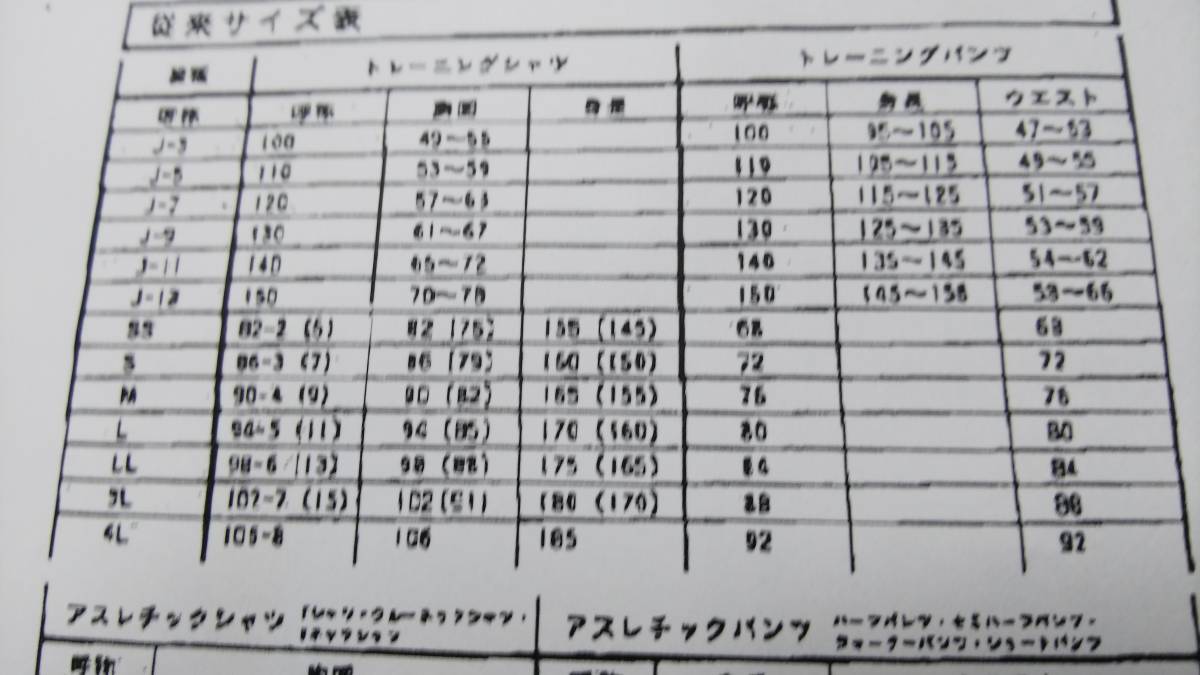 従来サイズ表
トレーニングシャツ トレーニングパンツ
呼称 呼称 胸囲 身長 呼称 身長 ウエスト
J-3 100 49〜55 100 95〜105 47〜53
J-5 110 53〜59 110 105〜115 49〜55
J-7 120 57〜63 120 115〜125 51〜57
J-9 130 61〜67 130 125〜135 53〜59
J-11 140 65〜72 140 135〜145 54〜62
150 70〜78 150 58〜66
SS 82-2 (5) 82 (76) 155 (145) 68 68
S 86-3 (7) 86 (79) 160 (150) 72 72
M 90-4 (9) 90 (82) 165 (155) 76 76
L 94-5 (11) 94 (85) 170 (160) 80 80
LL 98-6 (13) 98 (88) 175 (165) 84 84
3L 102-7 (15) 102 (91) 180 (170) 88 88
4L 106-8 106 185 92 92
アスレチックシャツ
アスレチックパンツ ハーフパンツ・セミハーフパンツ・
クォーターパンツ・ショートパンツ
呼称 胸囲